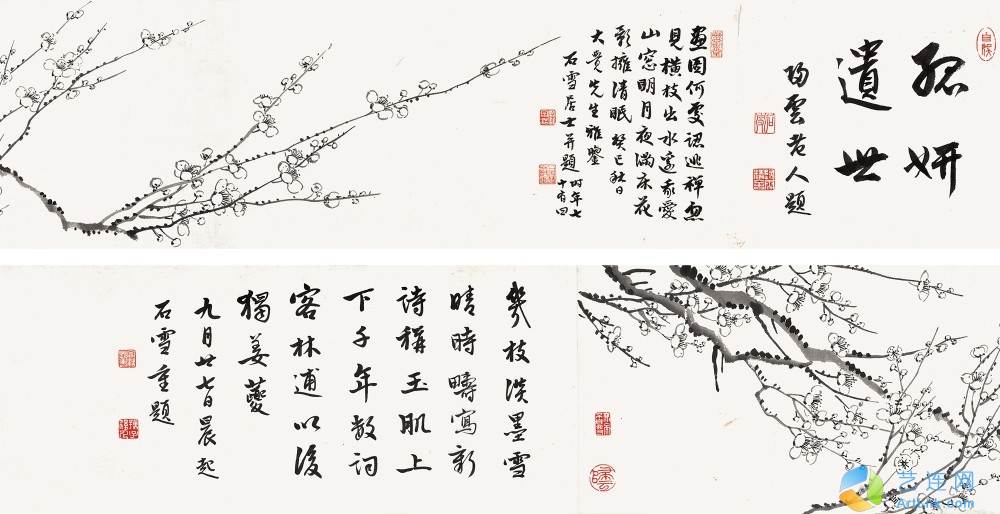 孤妍
遺世
雲老人題
畫图何處認逃禪忽
見橫枝出水邊我愛
山窓明月夜滿床花
影擁清眠 癸巳秋日
大先生雅鑒
石雪居士并題 时年七
十有四
幾枝淡墨雪
晴時疇寫新
詩稱玉肌上
下千年数詞
客林逋以後
獨姜夔
九月廿七日晨起
石雪重題
艺连网